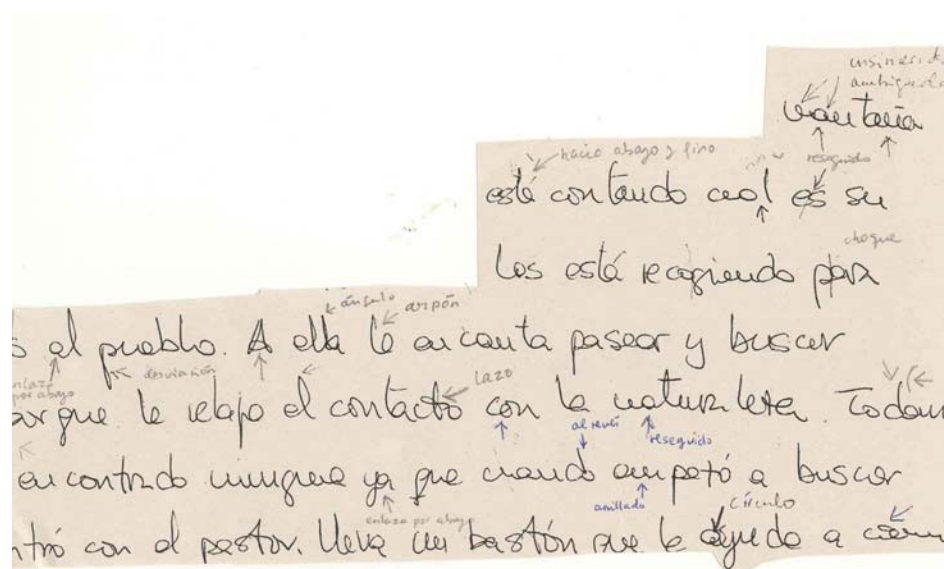 montaña
hacia abajo y fino
reseguido
está contando cual es su
choque
los está recogiendo para
ángulo arpón
el pueblo. A ella le encanta pasear y buscar
enlaza por abajo
desviación
lazo
porque le relaja el contacto con la naturaleza. Todaví
al revés
reseguido
encontrado ninguna ya que cuando empezó a buscar
enlaza por abajo
anillado
círculo
ntró con el pastor. lleva un bastón que le ayuda a